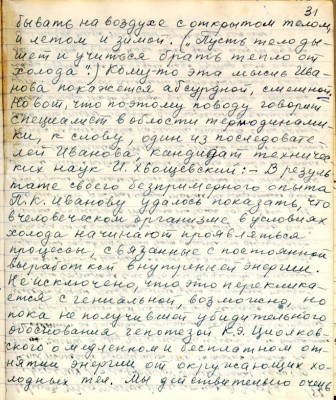 31
бывать на воздухе с открытом телом,
и летом и зимой. („Пусть тело ды-
шет и учиться брать тепло от
холода".) Кому-то эта мысль Ива
нова покажется абсурдной, смешной.
Но вот, что по этому поводу говорит
специалист в области термодинами-
ки, к слову, один из последовате-
лей Иванова кандидат техничес
ких наук И. Хвощевский: - В резуль
тате своего безпримерного опыта
П.К. Иванову удалось показать, что
в человеческом организме в условиях
холода начинают проявляться
процессы, связанные с постоянной
выработкой внутренней энергии.
Не исключено, что это перекликa-
ется с гениальной, возможно, но
пока не получившей убедительного
обоснования гепотезой К.Э. Циолков-
ского о медленном и бесплатном от-
нятии энергии от окружающих хо-
лодных тел. Мы действительно очень